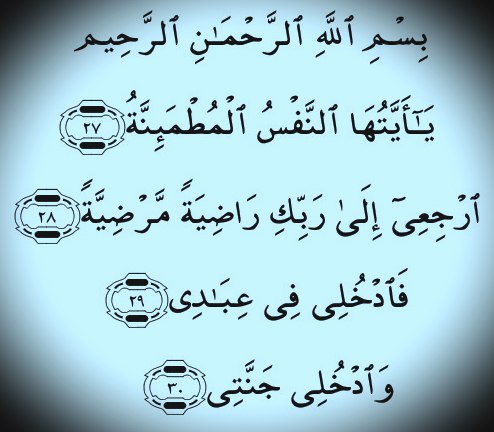 بِسْمِ ٱللَّهِ ٱلرَّحْمَـٰنِ ٱلرَّحِيمِ
يَـٰٓأَيَّتُهَا ٱلنَّفْسُ ٱلْمُطْمَئِنَّةُ ٢٧
ٱرْجِعِىٓ إِلَىٰ رَبِّكِ رَاضِيَةً مَّرْضِيَّةً ٢٨
فَٱدْخُلِى فِى عِبَـٰدِى ٢٩
وَٱدْخُلِى جَنَّتِى ٣٠